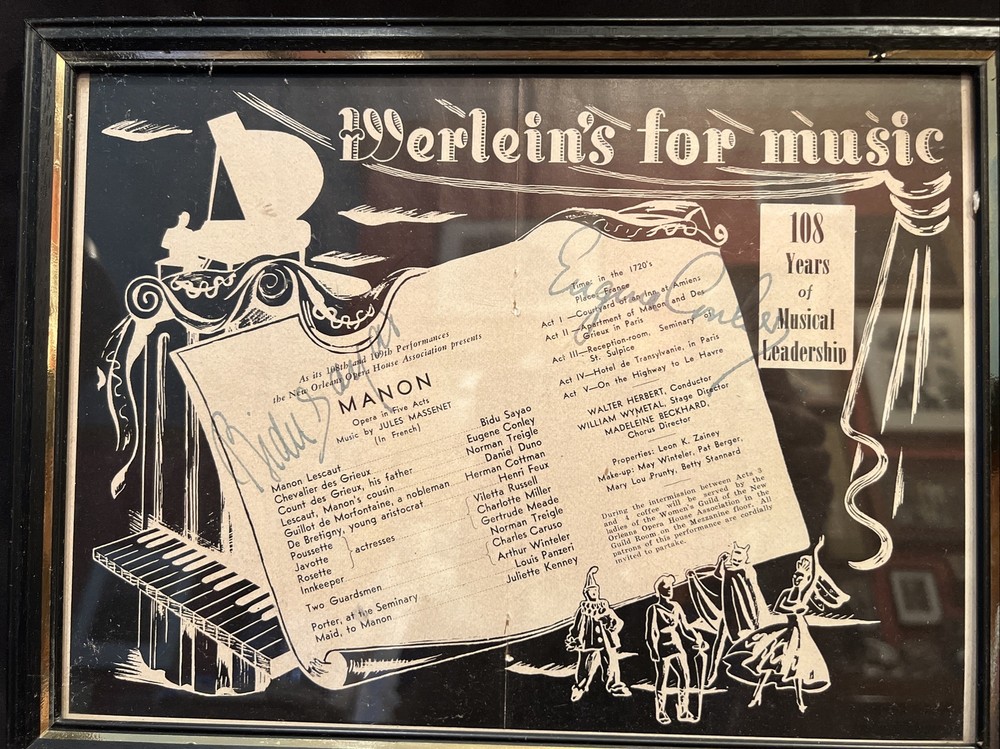 Werlein's for music
108
Years
of
Musical
Leadership
Bidu Sayao
Eugene Conley
As its 108th and 109th Performances
the New Orleans Opera House Association presents
MANON
Opera in Five Acts
Music by JULES MASSENET
(In French)
Manon Lescaut Bidu Sayao
Chevalier des Grieux Eugene Conley
Count des Grieux, his father Norman Treigle
Lescaut, Manon's cousin Daniel Duno
Guillot de Morfontaine, a nobleman Herman Cottman
De Bretigny, young aristocrat Henri Feux
Poussette Viletta Russell
Javotte actresses Charlotte Miller
Rosette Gertrude Meade
Innkeeper Norman Treigle
Two Guardsmen Charles Caruso
Arthur Winteler
Porter, at the Seminary Louis Panzeri
Maid, to Manon Juliette Kenney
Time: in the 1720's
Place: France
Act I—Courtyard of an Inn at Amiens
Act II—Apartment of Manon and Des
Grieux in Paris
Act III—Reception-room, Seminary of
St. Sulpice
Act IV—Hotel de Transylvanie, in Paris
Act V—On the Highway to Le Havre
WALTER HERBERT, Conductor
WILLIAM WYMETAL, Stage Director
MADELEINE BECKHARD,
Chorus Director
Properties: Leon K. Zainey
Make-up: May Winteler, Pat Berger,
Mary Lou Prunty, Betty Stannard
During the intermission between Acts 3
and 4 coffee will be served by the
ladies of the Women's Guild of the New
Orleans Opera House Association in the
Guild Room on the Mezzanine floor. All
patrons of this performance are cordially
invited to partake.